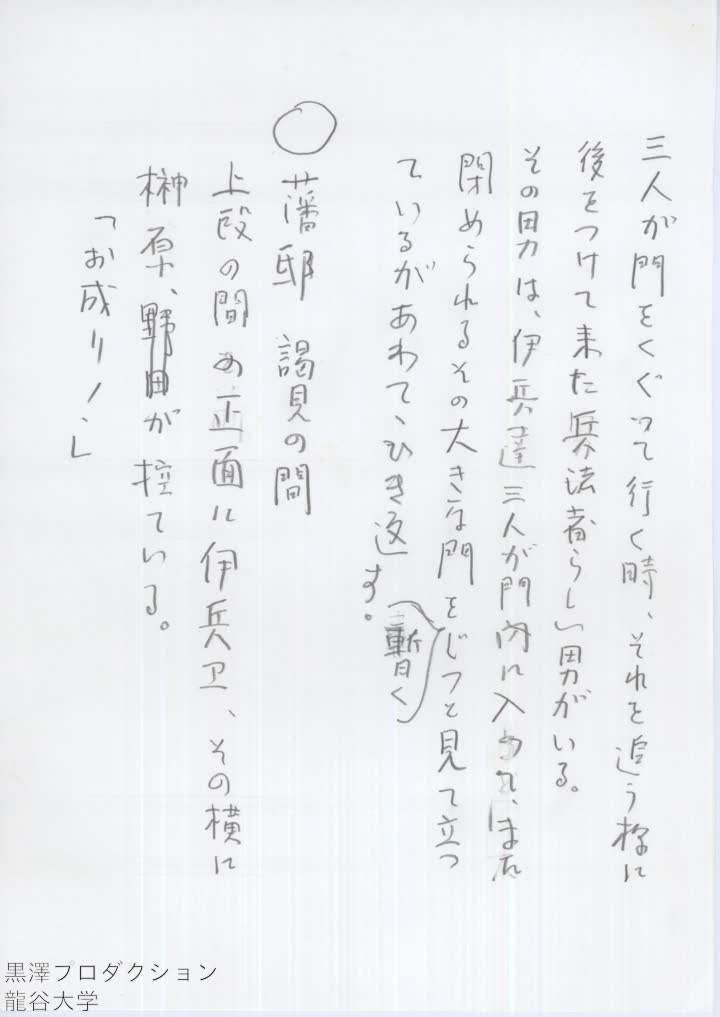 三人が門をくぐって行く時、それを追う様に
後をつけて来た兵法者らしい男がいる。
その男は、伊兵達三人が門内に入って、また
閉められるその大きな門を(暫く)じっと見て立っ
ているがあわて、ひき返す。
○藩邸 謁見の間
上段の間の正面に伊兵卫、その横に
榊原、野田が控ている。
「お成り!」
黒澤プロダクション
龍谷大学